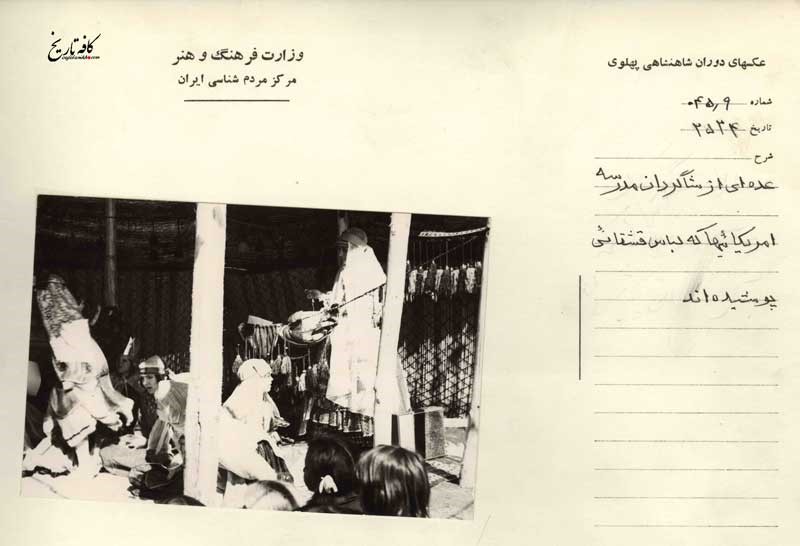 کافه تاریخ
وزارت فرهنگ و هنر
مرکز مردم شناسی ایران
عکسهای دوران شاهنشاهی پهلوی
شماره ۰۴۵٫۹
تاریخ ۲۵۳۴
شرح
عده‌ای از شاگردان مدرسه
امریکائیها که لباس قشقائی
پوشیده‌اند